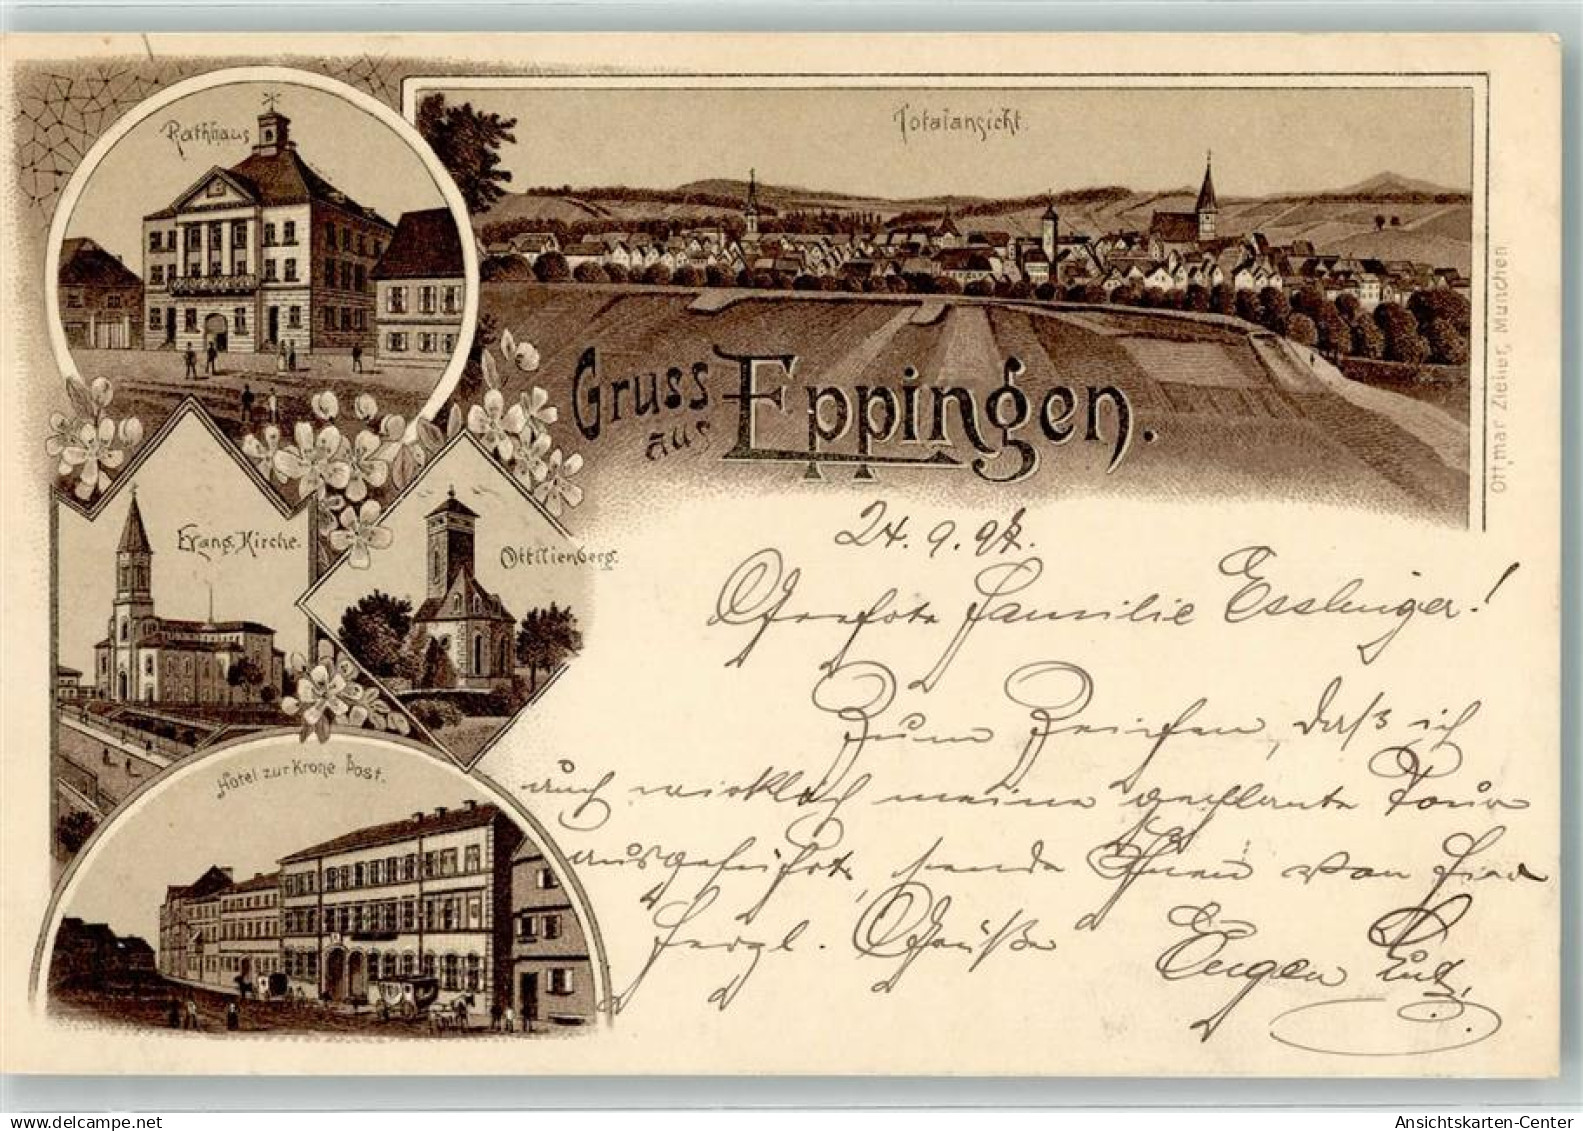 Rathhaus
Totalansicht.
Gruss
aus
Eppingen.
Evang. Kirche.
Ottilienberg.
Hotel zur Krone Post.
Ottmar Zieher, München
24. 9. 97.
Geehrte Familie Esslinger!
Zum Zeichen, daß ich
auch wirklich meine geplante Tour
ausgeführt, sende Ihnen von hier
herzl. Grüße
Eugen Lutz.
www.delcampe.net
Ansichtskarten-Center